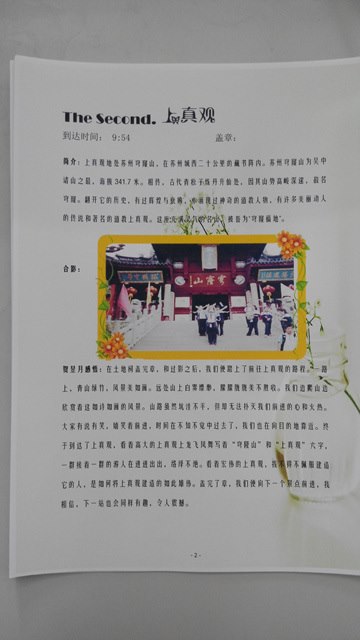 The Second. 上真观
到达时间： 9:54 盖章：
简介：上真观地处苏州穹窿山，在苏州城西二十公里的藏书镇内。苏州穹窿山为吴中
诸山之最，海拔 341.7 米。相传，古代赤松子炼丹升仙处，因其山势高峻深邃，故名
穹窿。翻开它的历史，有过辉煌与衰落，亦涌现过神奇的道教人物，有许多美丽动人
的传说和著名的道教上真观。这座充满
合影：
山窿穹
贺昱月感悟：在土地祠盖完章，和过影之后，我们便踏上了前往上真观的路程。一路
上，青山绿竹，风景美如画。远处山上白雾缭绕，朦朦胧胧美不胜收。我们边爬山边
欣赏着这如诗如画的风景。山路虽然坑洼不平，但却无法扑灭我们前进的心和火热。
大家有说有笑，嬉笑着前进，时间在不知不觉中过去了，我们也在向目的地靠近。终
于到达了上真观，看着高大的上真观上龙飞凤舞写着“穹窿山”和“上真观”六字，
一群接着一群的游人在进进出出，络绎不绝。看着宏伟的上真观，我不得不佩服建造
它的人，是如何将上真观建造的如此雄伟。盖完了章，我们便向下一个景点前进，我
相信，下一站也会同样有趣，令人震撼。
- 2 -